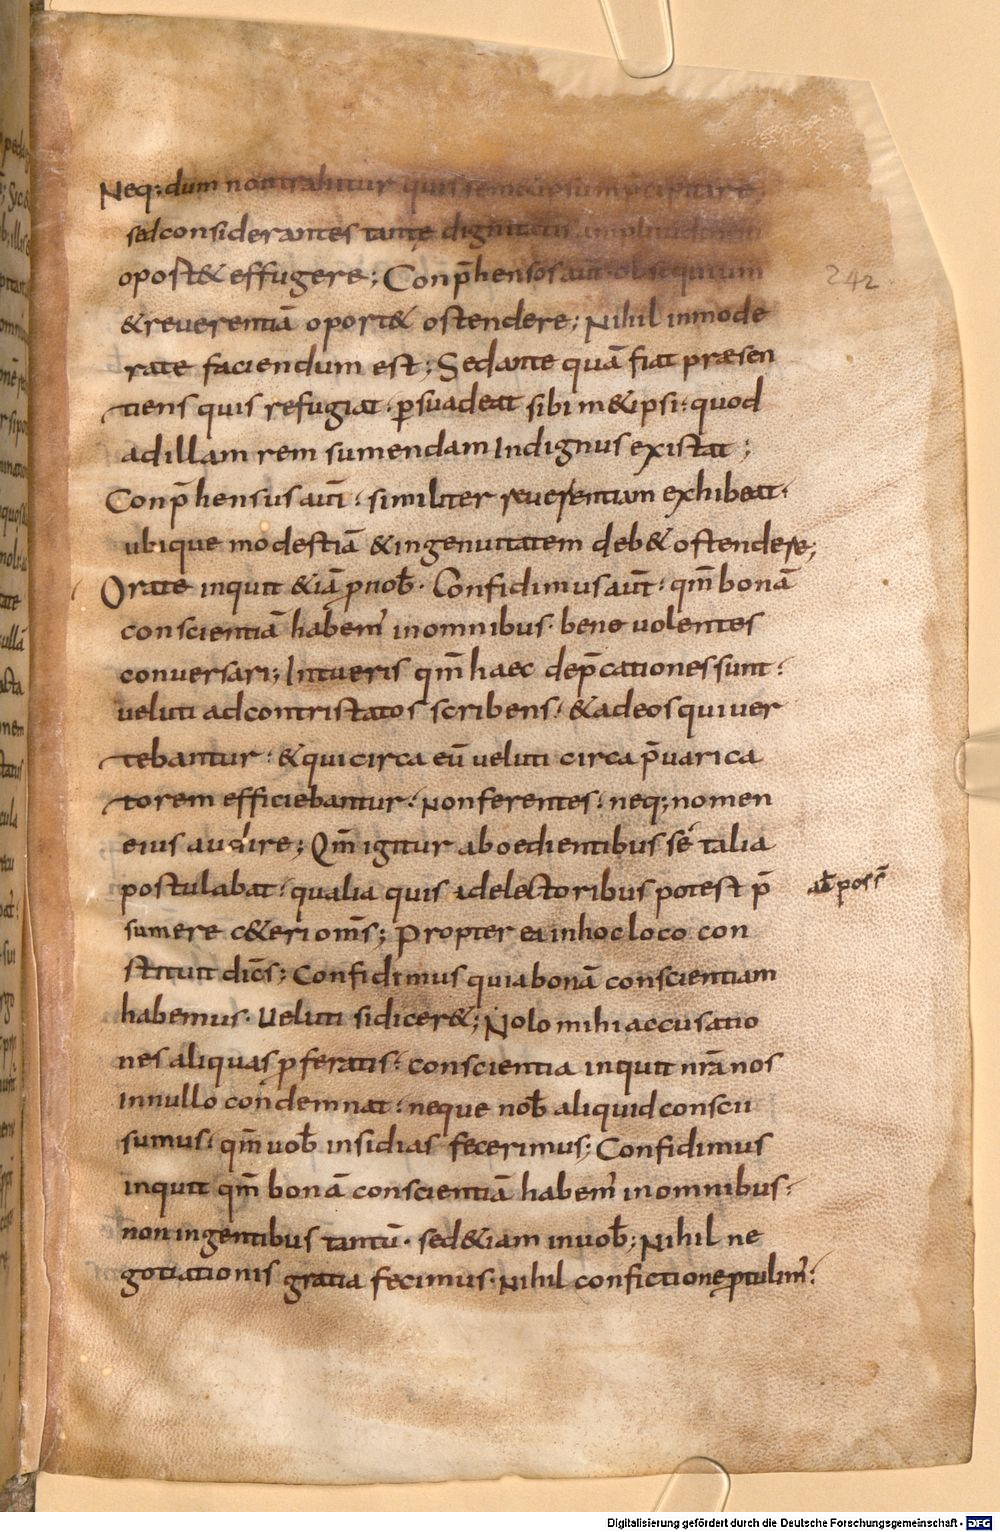 Neq; dum non trahitur quis semetipsum p̄cipitare;
sed considerantes tantę dignitatis amplitudinem
oport& effugere; Conp̄hensos aut̄ obsequium
& reuerentiā oport& ostendere; Nihil inmode
rate faciendum est; Sed ante quā fiat præsen
tiens quis refugiat · p̱suadeat sibi m&ipsi · quod
ad illam rem sumendam Indignus existat;
Conp̄hensus aut̄ · similiter reuerentiam exhibeat ·
ubique modestiā & ingenuitatem deb& ostendere;
Orate inquit &iā ꝓ nob̄ · Confidimus aut̄ · qm̄ bonā
conscientiā habem᾽ in omnibus · bene uolentes
conuersari; Intueris qm̄ haec dep̄cationes sunt ·
ueluti ad contristatos scribens · & ad eos qui uer
tebantur · & qui circa eū ueluti circa p̄uarica
torem efficiebantur · Non ferentes · neq; nomen
eius audire; Qm̄ igitur ab oedientibus sé talia
postulabat · qualia quis a delectoribus potest p̄
sumere c&eri om̄s; Propter ea in hoc loco con
stituit dicēs; Confidimus quia bonā conscientiam
habemus · Ueluti si dicer&; Nolo mihi accusatio
nes aliquas ꝓferatis · conscientia inquit nr̄a nos
In nullo condemnat · neque nob̄ aliquid conscii
sumus · qm̄ uob̄ insidias fecerimus; Confidimus
inquit qm̄ bonā conscientiā habem᾽ in omnibus ·
non in gentibus tantū · sed &iam in uob̄; Nihil ne
gotiationis gratia fecimus · Nihil confictione ꝓtulim᾽ ·
242
Digitalisierung gefördert durch die Deutsche Forschungsgemeinschaft - DFG